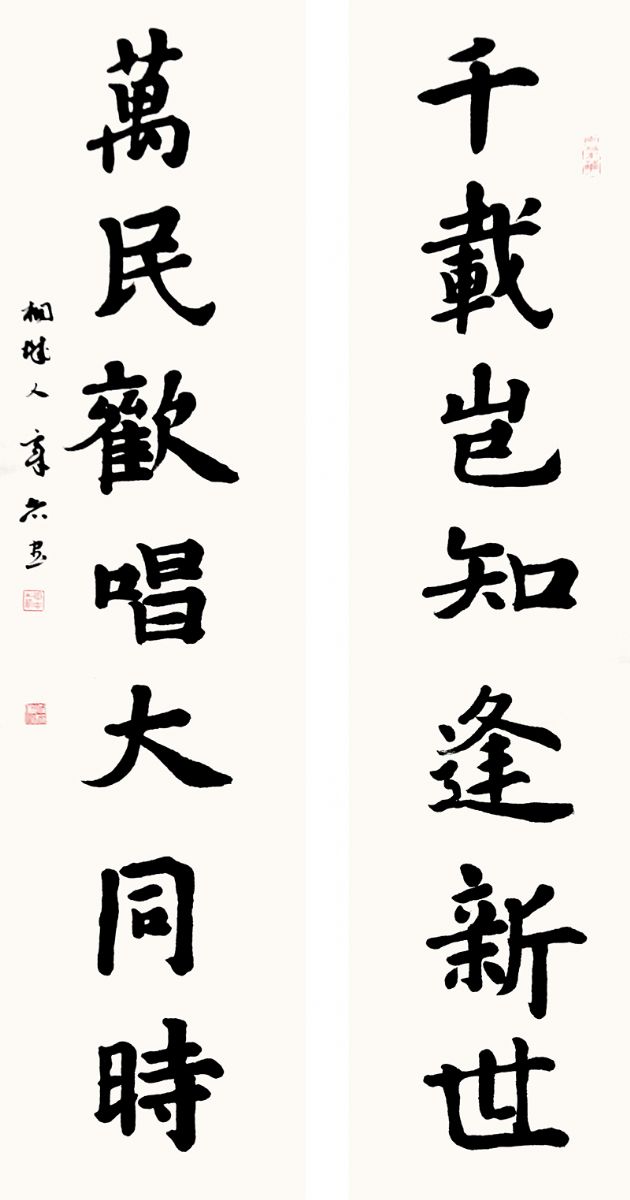 千載豈知逢新世
萬民歡唱大同時
桐城人章六書